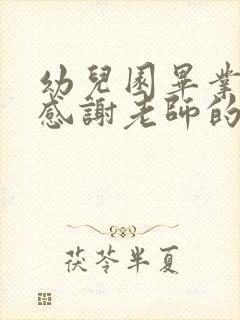 幼兒園畢業
感謝老師的
茯苓半夏